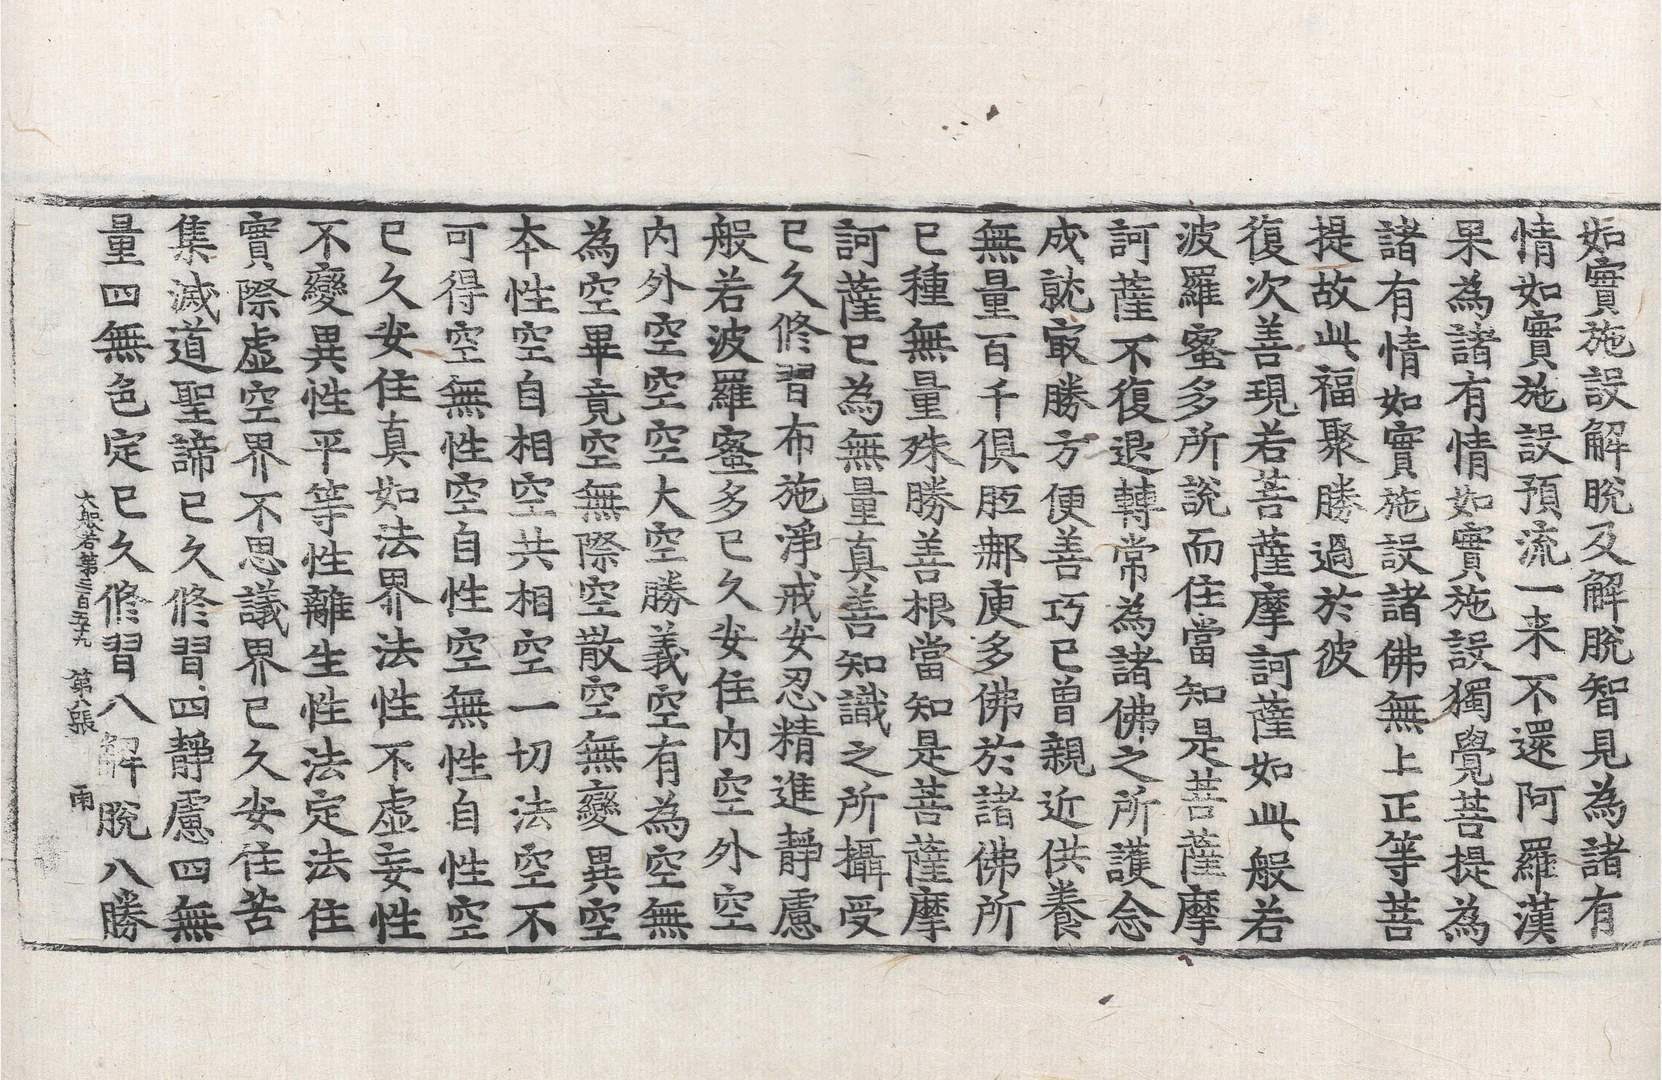 如實施設解脫及解脫智見為諸有
情如實施設預流一来不還阿羅漢
果為諸有情如實施設獨覺菩提為
諸有情如實施設諸佛無上正等菩
提故此福聚勝過於彼
復次善現若菩薩摩訶薩如此般若
波羅蜜多所說而住當知是菩薩摩
訶薩不復退轉常為諸佛之所護念
成就㝡勝方便善巧已曾親近供養
無量百千俱胝那庾多佛於諸佛所
已種無量殊勝善根當知是菩薩摩
訶薩已為無量真善知識之所攝受
已久修習布施淨戒安忍精進靜慮
般若波羅蜜多已久安住內空外空
內外空空空大空勝義空有為空無
為空畢竟空無際空散空無變異空
本性空自相空共相空一切法空不
可得空無性空自性空無性自性空
已久安住真如法界法性不虛妄性
不變異性平等性離生性法定法住
實際虛空界不思議界已久安住苦
集滅道聖諦已久修習四靜慮四無
量四無色定已久修習八解脫八勝
大般若第三百五十九　第八張　雨